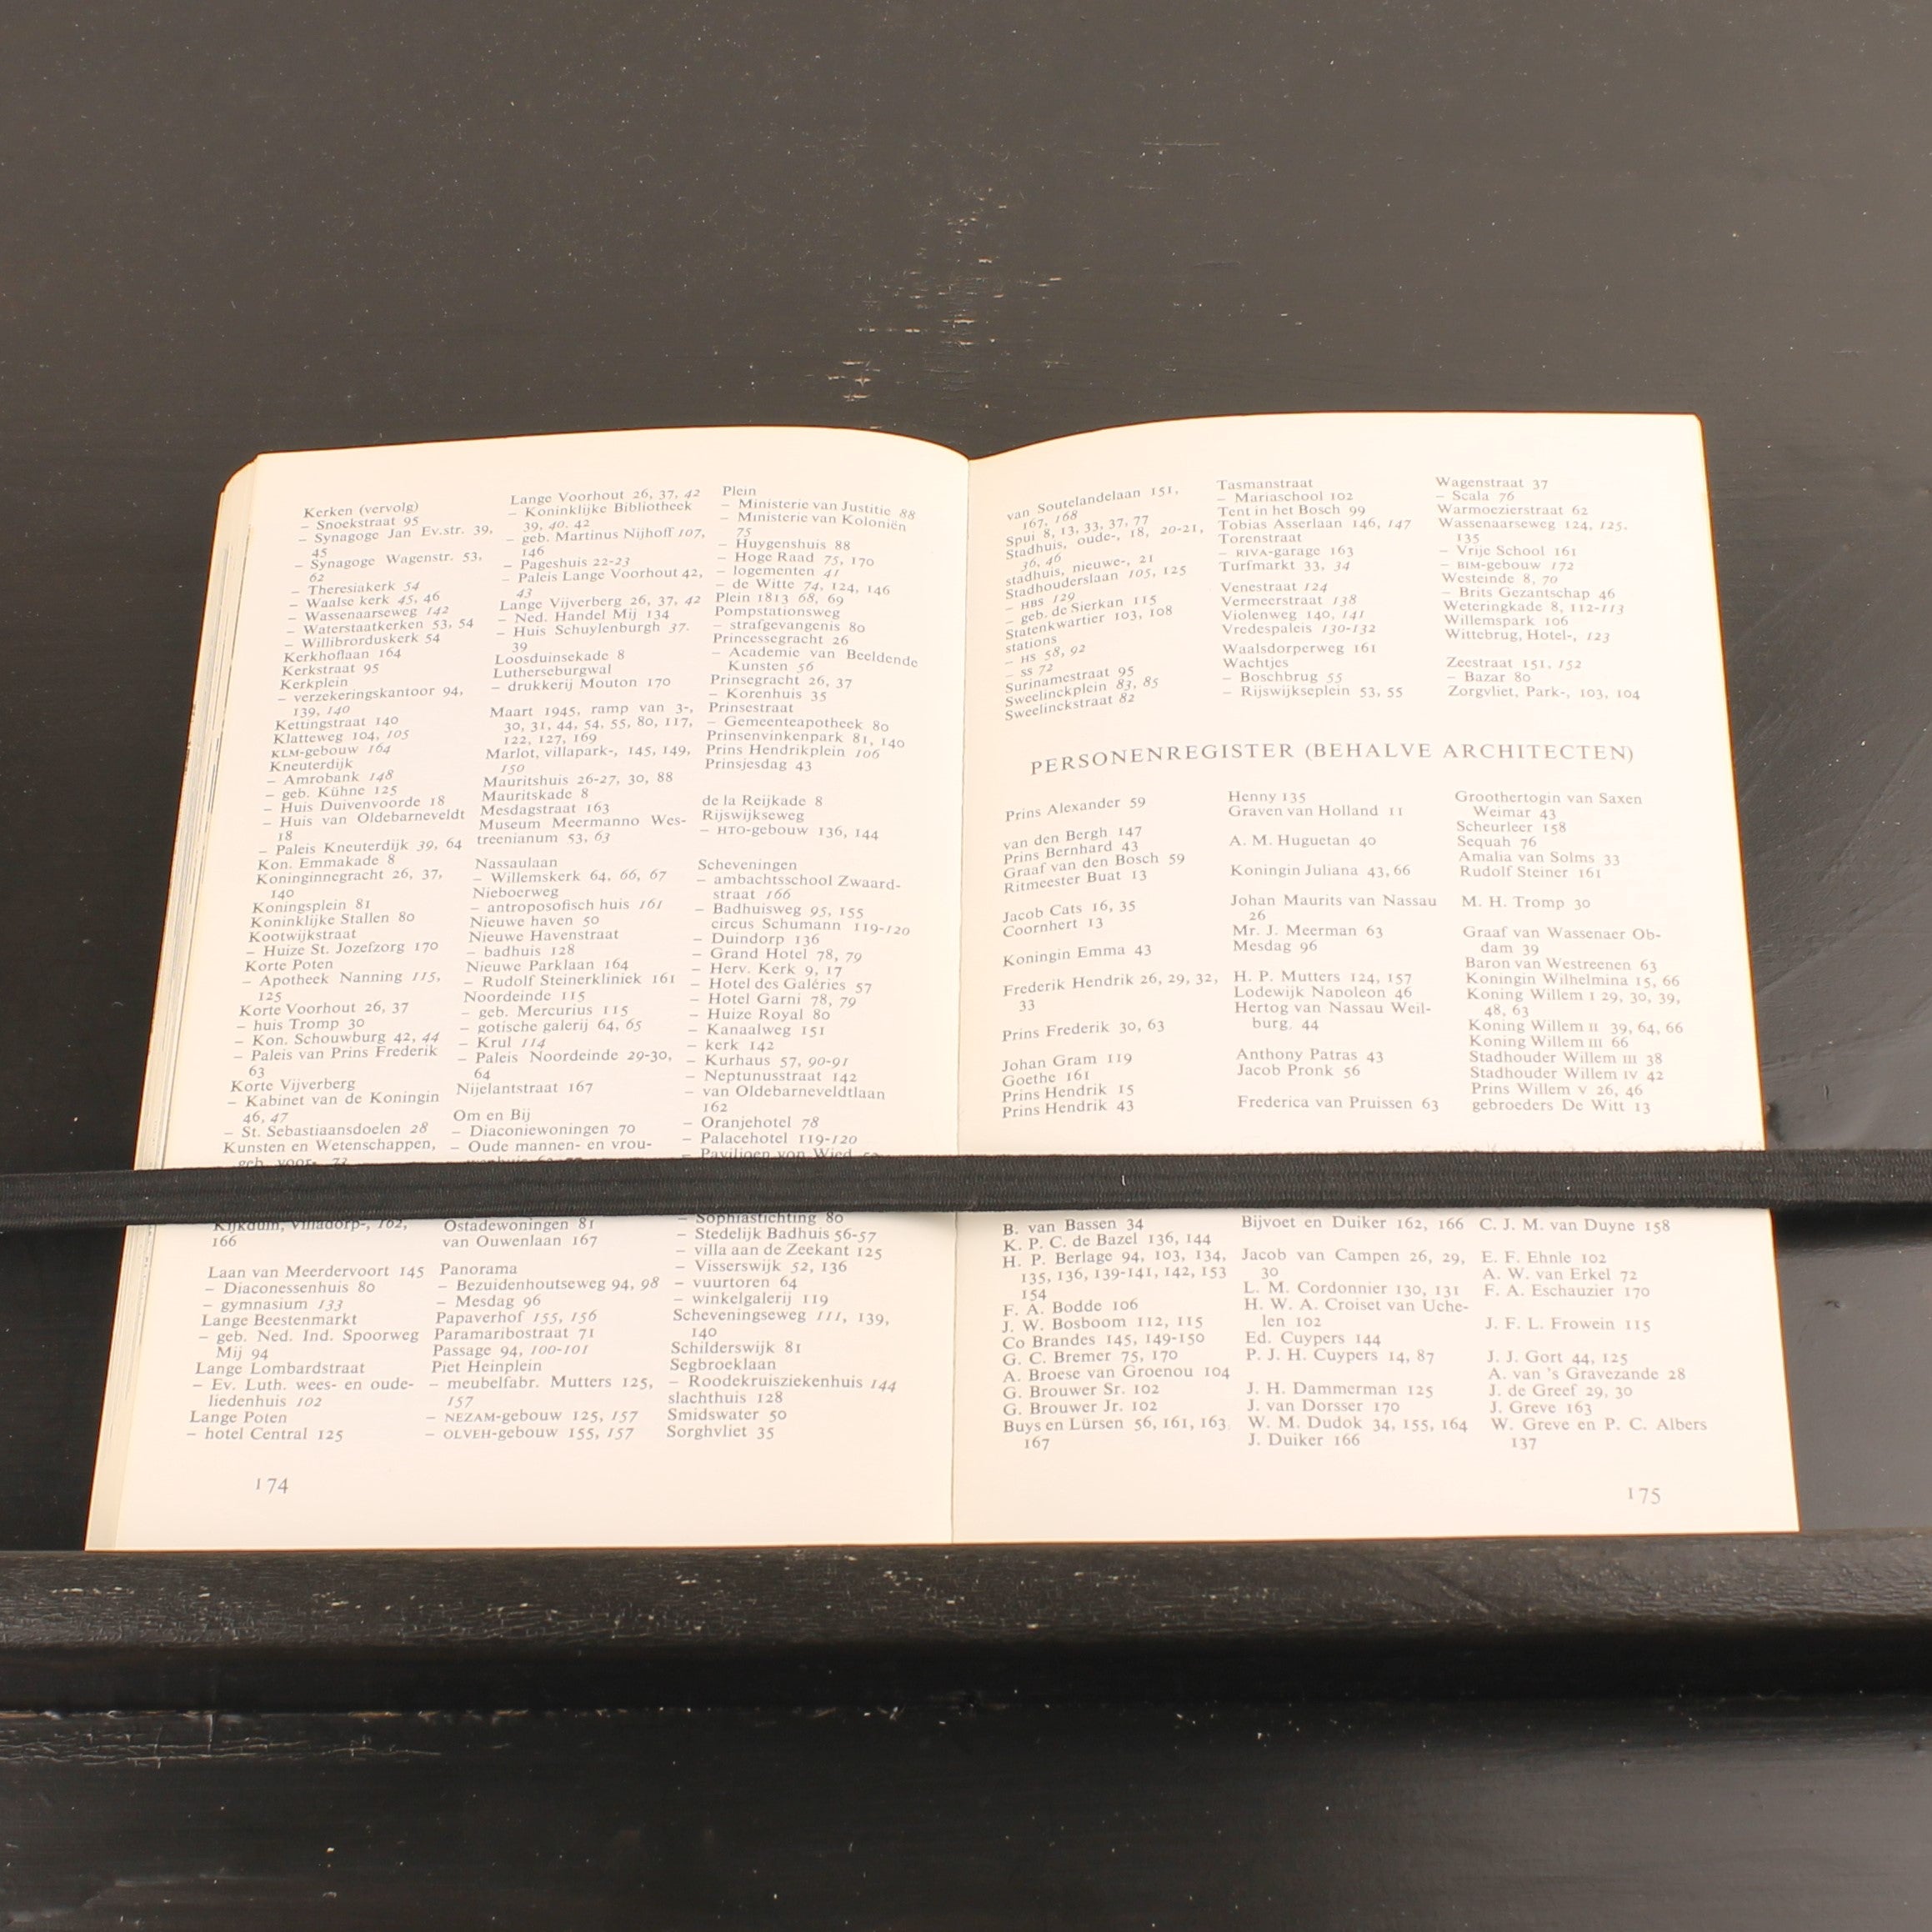 Kerken (vervolg)
– Snoekstraat 95
– Synagoge Jan Ev.str. 39,
45
– Synagoge Wagenstr. 53,
62
– Theresiakerk 54
– Waalse kerk 45, 46
– Wassenaarseweg 142
– Waterstaatkerken 53, 54
– Willibrorduskerk 54
Kerkhoflaan 164
Kerkstraat 95
Kerkplein
– verzekeringskantoor 94,
139, 140
Kettingstraat 140
Klatteweg 104, 105
KLM-gebouw 164
Kneuterdijk
– Amrobank 148
– geb. Kühne 125
– Huis Duivenvoorde 18
– Huis van Oldebarneveldt
18
– Paleis Kneuterdijk 39, 64
Kon. Emmakade 8
Koninginnegracht 26, 37,
140
Koningsplein 81
Koninklijke Stallen 80
Kootwijkstraat
– Huize St. Jozefzorg 170
Korte Poten
– Apotheek Nanning 115,
125
Korte Voorhout 26, 37
– huis Tromp 30
– Kon. Schouwburg 42, 44
– Paleis van Prins Frederik
63
Korte Vijverberg
– Kabinet van de Koningin
46, 47
– St. Sebastiaansdoelen 28
Kunsten en Wetenschappen,
geb. voor- 73
Kijkduin, villadorp-, 162,
166
Laan van Meerdervoort 145
– Diaconessenhuis 80
– gymnasium 133
Lange Beestenmarkt
– geb. Ned. Ind. Spoorweg
Mij 94
Lange Lombardstraat
– Ev. Luth. wees- en oude-
liedenhuis 102
Lange Poten
– hotel Central 125
Lange Voorhout 26, 37, 42
– Koninklijke Bibliotheek
39, 40, 42
– geb. Martinus Nijhoff 107,
146
– Pageshuis 22-23
– Paleis Lange Voorhout 42,
43
Lange Vijverberg 26, 37, 42
– Ned. Handel Mij 134
– Huis Schuylenburgh 37,
39
Loosduinsekade 8
Lutherseburgwal
– drukkerij Mouton 170
Maart 1945, ramp van 3-,
30, 31, 44, 54, 55, 80, 117,
122, 127, 169
Marlot, villapark-, 145, 149,
150
Mauritshuis 26-27, 30, 88
Mauritskade 8
Mesdagstraat 163
Museum Meermanno Wes-
treenianum 53, 63
Nassaulaan
– Willemskerk 64, 66, 67
Nieboerweg
– antroposofisch huis 161
Nieuwe haven 50
Nieuwe Havenstraat
– badhuis 128
Nieuwe Parklaan 164
– Rudolf Steinerkliniek 161
Noordeinde 115
– geb. Mercurius 115
– gotische galerij 64, 65
– Krul 114
– Paleis Noordeinde 29-30,
64
Nijelantstraat 167
Om en Bij
– Diaconiewoningen 70
– Oude mannen- en vrou-
Ostadewoningen 81
van Ouwenlaan 167
Panorama
– Bezuidenhoutseweg 94, 98
– Mesdag 96
Papaverhof 155, 156
Paramaribostraat 71
Passage 94, 100-101
Piet Heinplein
– meubelfabr. Mutters 125,
157
– NEZAM-gebouw 125, 157
– OLVEH-gebouw 155, 157
Plein
– Ministerie van Justitie 88
– Ministerie van Koloniën
75
– Huygenshuis 88
– Hoge Raad 75, 170
– logementen 41
– de Witte 74, 124, 146
Plein 1813 68, 69
Pompstationsweg
– strafgevangenis 80
Princessegracht 26
– Academie van Beeldende
Kunsten 56
Prinsegracht 26, 37
– Korenhuis 35
Prinsestraat
– Gemeenteapotheek 80
Prinsenvinkenpark 81, 140
Prins Hendrikplein 106
Prinsjesdag 43
de la Reijkade 8
Rijswijkseweg
– HTO-gebouw 136, 144
Scheveningen
– ambachtsschool Zwaard-
straat 166
– Badhuisweg 95, 155
circus Schumann 119-120
– Duindorp 136
– Grand Hotel 78, 79
– Herv. Kerk 9, 17
– Hotel des Galéries 57
– Hotel Garni 78, 79
– Huize Royal 80
– Kanaalweg 151
– kerk 142
– Kurhaus 57, 90-91
– Neptunusstraat 142
– van Oldebarneveldtlaan
162
– Oranjehotel 78
– Palacehotel 119-120
– Paviljoen von Wied
– Sophiastichting 80
– Stedelijk Badhuis 56-57
– villa aan de Zeekant 125
– Visserswijk 52, 136
– vuurtoren 64
– winkelgalerij 119
Scheveningseweg 111, 139,
140
Schilderswijk 81
Segbroeklaan
– Roodekruisziekenhuis 144
slachthuis 128
Smidswater 50
Sorghvliet 35
174
van Soutelandelaan 151,
167, 168
Spui 8, 13, 33, 37, 77
Stadhuis, oude-, 18, 20-21,
36, 46
stadhuis, nieuwe-, 21
Stadhouderslaan 105, 125
– HBS 129
– geb. de Sierkan 115
Statenkwartier 103, 108
stations
– HS 58, 92
– SS 72
Surinamestraat 95
Sweelinckplein 83, 85
Sweelinckstraat 82
Tasmanstraat
– Mariaschool 102
Tent in het Bosch 99
Tobias Asserlaan 146, 147
Torenstraat
– RIVA-garage 163
Turfmarkt 33, 34
Venestraat 124
Vermeerstraat 138
Violenweg 140, 141
Vredespaleis 130-132
Waalsdorperweg 161
Wachtjes
– Boschbrug 55
– Rijswijkseplein 53, 55
Wagenstraat 37
– Scala 76
Warmoezierstraat 62
Wassenaarseweg 124, 125,
135
– Vrije School 161
– BIM-gebouw 172
Westeinde 8, 70
– Brits Gezantschap 46
Weteringkade 8, 112-113
Willemspark 106
Wittebrug, Hotel-, 123
Zeestraat 151, 152
– Bazar 80
Zorgvliet, Park-, 103, 104
PERSONENREGISTER (BEHALVE ARCHITECTEN)
Prins Alexander 59
van den Bergh 147
Prins Bernhard 43
Graaf van den Bosch 59
Ritmeester Buat 13
Jacob Cats 16, 35
Coornhert 13
Koningin Emma 43
Frederik Hendrik 26, 29, 32,
33
Prins Frederik 30, 63
Johan Gram 119
Goethe 161
Prins Hendrik 15
Prins Hendrik 43
Henny 135
Graven van Holland 11
A. M. Huguetan 40
Koningin Juliana 43, 66
Johan Maurits van Nassau
26
Mr. J. Meerman 63
Mesdag 96
H. P. Mutters 124, 157
Lodewijk Napoleon 46
Hertog van Nassau Weil-
burg, 44
Anthony Patras 43
Jacob Pronk 56
Frederica van Pruissen 63
Groothertogin van Saxen
Weimar 43
Scheurleer 158
Sequah 76
Amalia van Solms 33
Rudolf Steiner 161
M. H. Tromp 30
Graaf van Wassenaer Ob-
dam 39
Baron van Westreenen 63
Koningin Wilhelmina 15, 66
Koning Willem I 29, 30, 39,
48, 63
Koning Willem II 39, 64, 66
Koning Willem III 66
Stadhouder Willem III 38
Stadhouder Willem IV 42
Prins Willem V 26, 46
gebroeders De Witt 13
B. van Bassen 34
K. P. C. de Bazel 136, 144
H. P. Berlage 94, 103, 134,
135, 136, 139-141, 142, 153
154
F. A. Bodde 106
J. W. Bosboom 112, 115
Co Brandes 145, 149-150
G. C. Bremer 75, 170
A. Broese van Groenou 104
G. Brouwer Sr. 102
G. Brouwer Jr. 102
Buys en Lürsen 56, 161, 163,
167
Bijvoet en Duiker 162, 166
Jacob van Campen 26, 29,
30
L. M. Cordonnier 130, 131
H. W. A. Croiset van Uche-
len 102
Ed. Cuypers 144
P. J. H. Cuypers 14, 87
J. H. Dammerman 125
J. van Dorsser 170
W. M. Dudok 34, 155, 164
J. Duiker 166
C. J. M. van Duyne 158
E. F. Ehnle 102
A. W. van Erkel 72
F. A. Eschauzier 170
J. F. L. Frowein 115
J. J. Gort 44, 125
A. van 's Gravezande 28
J. de Greef 29, 30
J. Greve 163
W. Greve en P. C. Albers
137
175